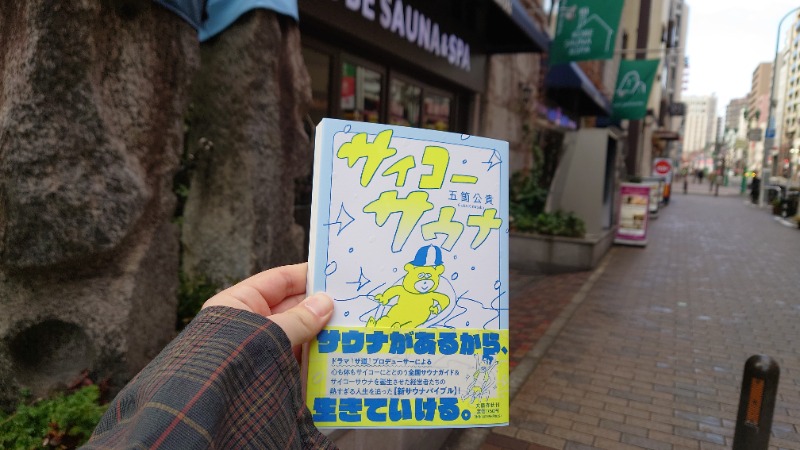 DE SAUNA&SPA
サイコー
サウナ
五箇公貴
サウナがあるから、
ドラマ『サ道』プロデューサーによる
心も体もサイコーにととのう全国サウナガイド&
サイコーサウナを誕生させた経営者たちの
熱すぎる人生を追った【新サウナバイブル】!
生きていける。